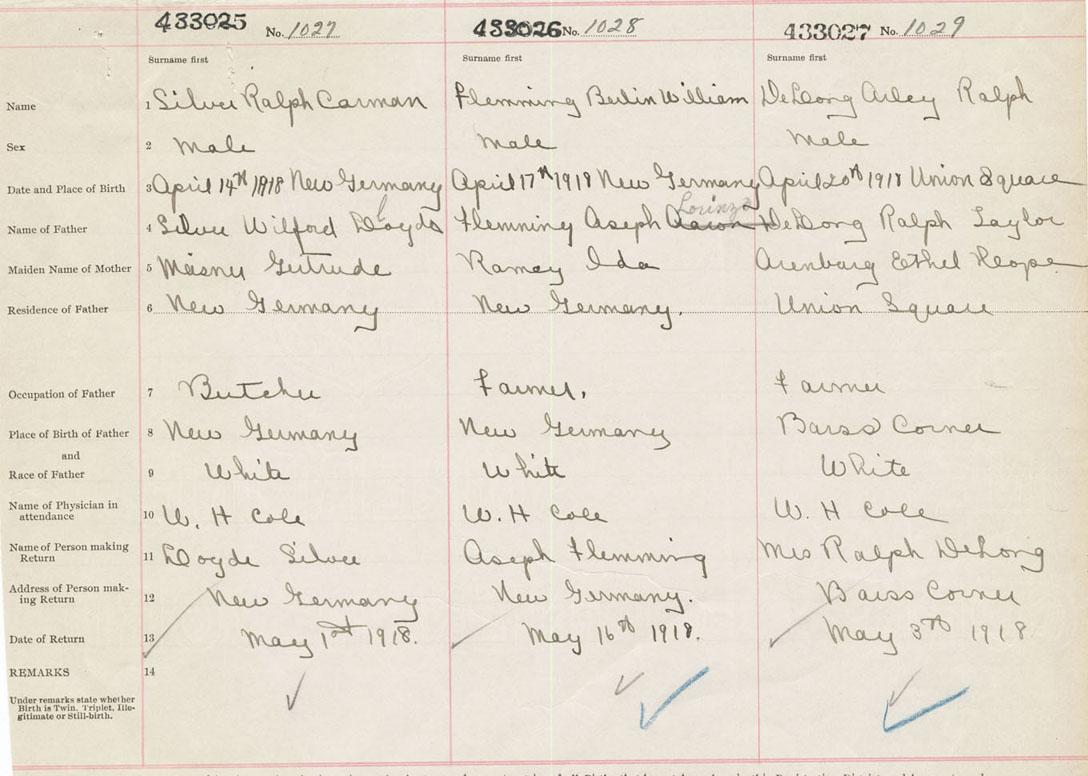 433025 No. 1027 433026 No. 1028 433027 No. 1029
Surname first Surname first Surname first
Name 1 Silver Ralph Carman Flemming Berlin William DeLong Arley Ralph
Sex 2 Male Male Male
Date and Place of Birth 3 April 14th 1918 New Germany April 17th 1918 New Germany April 20th 1918 Union Square
Lorinzo
Name of Father 4 Silver Wilford Lloyde Flemming Aseph Aaron DeLong Ralph Taylor
Maiden Name of Mother 5 Meisner Gertrude Ramey Ida Arenburg Ethel
Residence of Father 6 New Germany New Germany. Union Square
Occupation of Father 7 Butcher Farmer. Farmer
Place of Birth of Father 8 New Germany New Germany Barss Corner
and
Race of Father 9 White White White
Name of Physician in
attendance 10 W. H Cole W. H Cole W. H Cole
Name of Person making
Return 11 Lloyde Silver Aseph Flemming Mrs Ralph DeLong
Address of Person mak-
ing Return 12 New Germany New Germany. Barss Corner
Date of Return 13 May 1st 1918. May 16th 1918. May 3rd 1918
REMARKS 14
Under remarks state whether
Birth is Twin, Triplet, Ille-
gitimate or Still-birth.